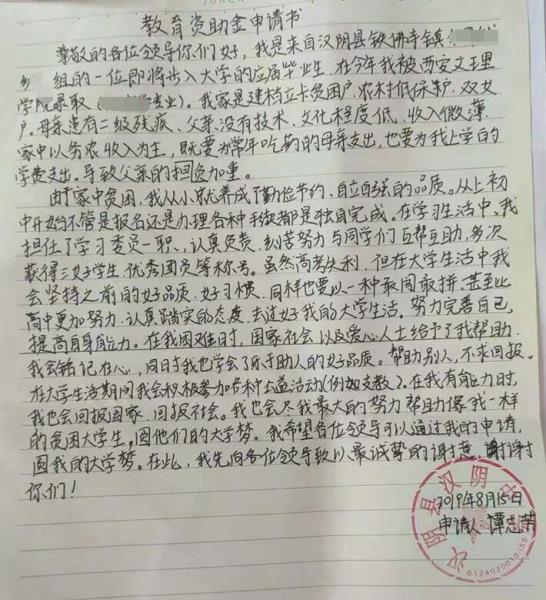 教育资助金申请书
尊敬的各位领导你们好，我是来自汉阴县铁佛寺镇
乡 组的一位即将步入大学的应届毕业生，在今年我被西安文理
学院录取（ 专业）。我家是建档立卡贫困户、农村低保户、双女
户。母亲患有二级残疾、父亲没有技术、文化程度低、收入微薄
家中以务农收入为主，既要为常年吃药的母亲支出，也要为我上学的
学费支出。导致父亲的担负加重。
由于家中贫困，我从小就养成了勤俭节约、自立自强的品质。从上初
中开始不管是报名还是办理各种手续都是独自完成。在学习生活中，我
担任了学习委员一职、认真负责，刻苦努力与同学们互帮互助，多次
获得三好学生、优秀团员等称号。虽然高考失利，但在大学生活中我
会坚持之前的好品质、好习惯，同样也要以一种敢闯敢拼、甚至比
高中更加努力、认真踏实的态度，去过好我的大学生活。努力完善自己，
提高自身能力。在我困难时，国家社会以及爱心人士给予了我帮助，
我会铭记在心，同时我也学会了乐于助人的好品质。帮助别人，不求回报。
在大学生活期间我会积极参加各种公益活动（例如支教）。在我有能力时，
我也会回报国家、回报社会。我也会尽我最大的努力帮助像我一样
的贫困大学生，圆他们的大学梦。我希望各位领导可以通过我的申请，
圆我的大学梦。在此，我先向各位领导致以最诚挚的谢意，谢谢
你们！
2019年8月15日
申请人 谭志芳
汉阴县汉阴
6124020010155